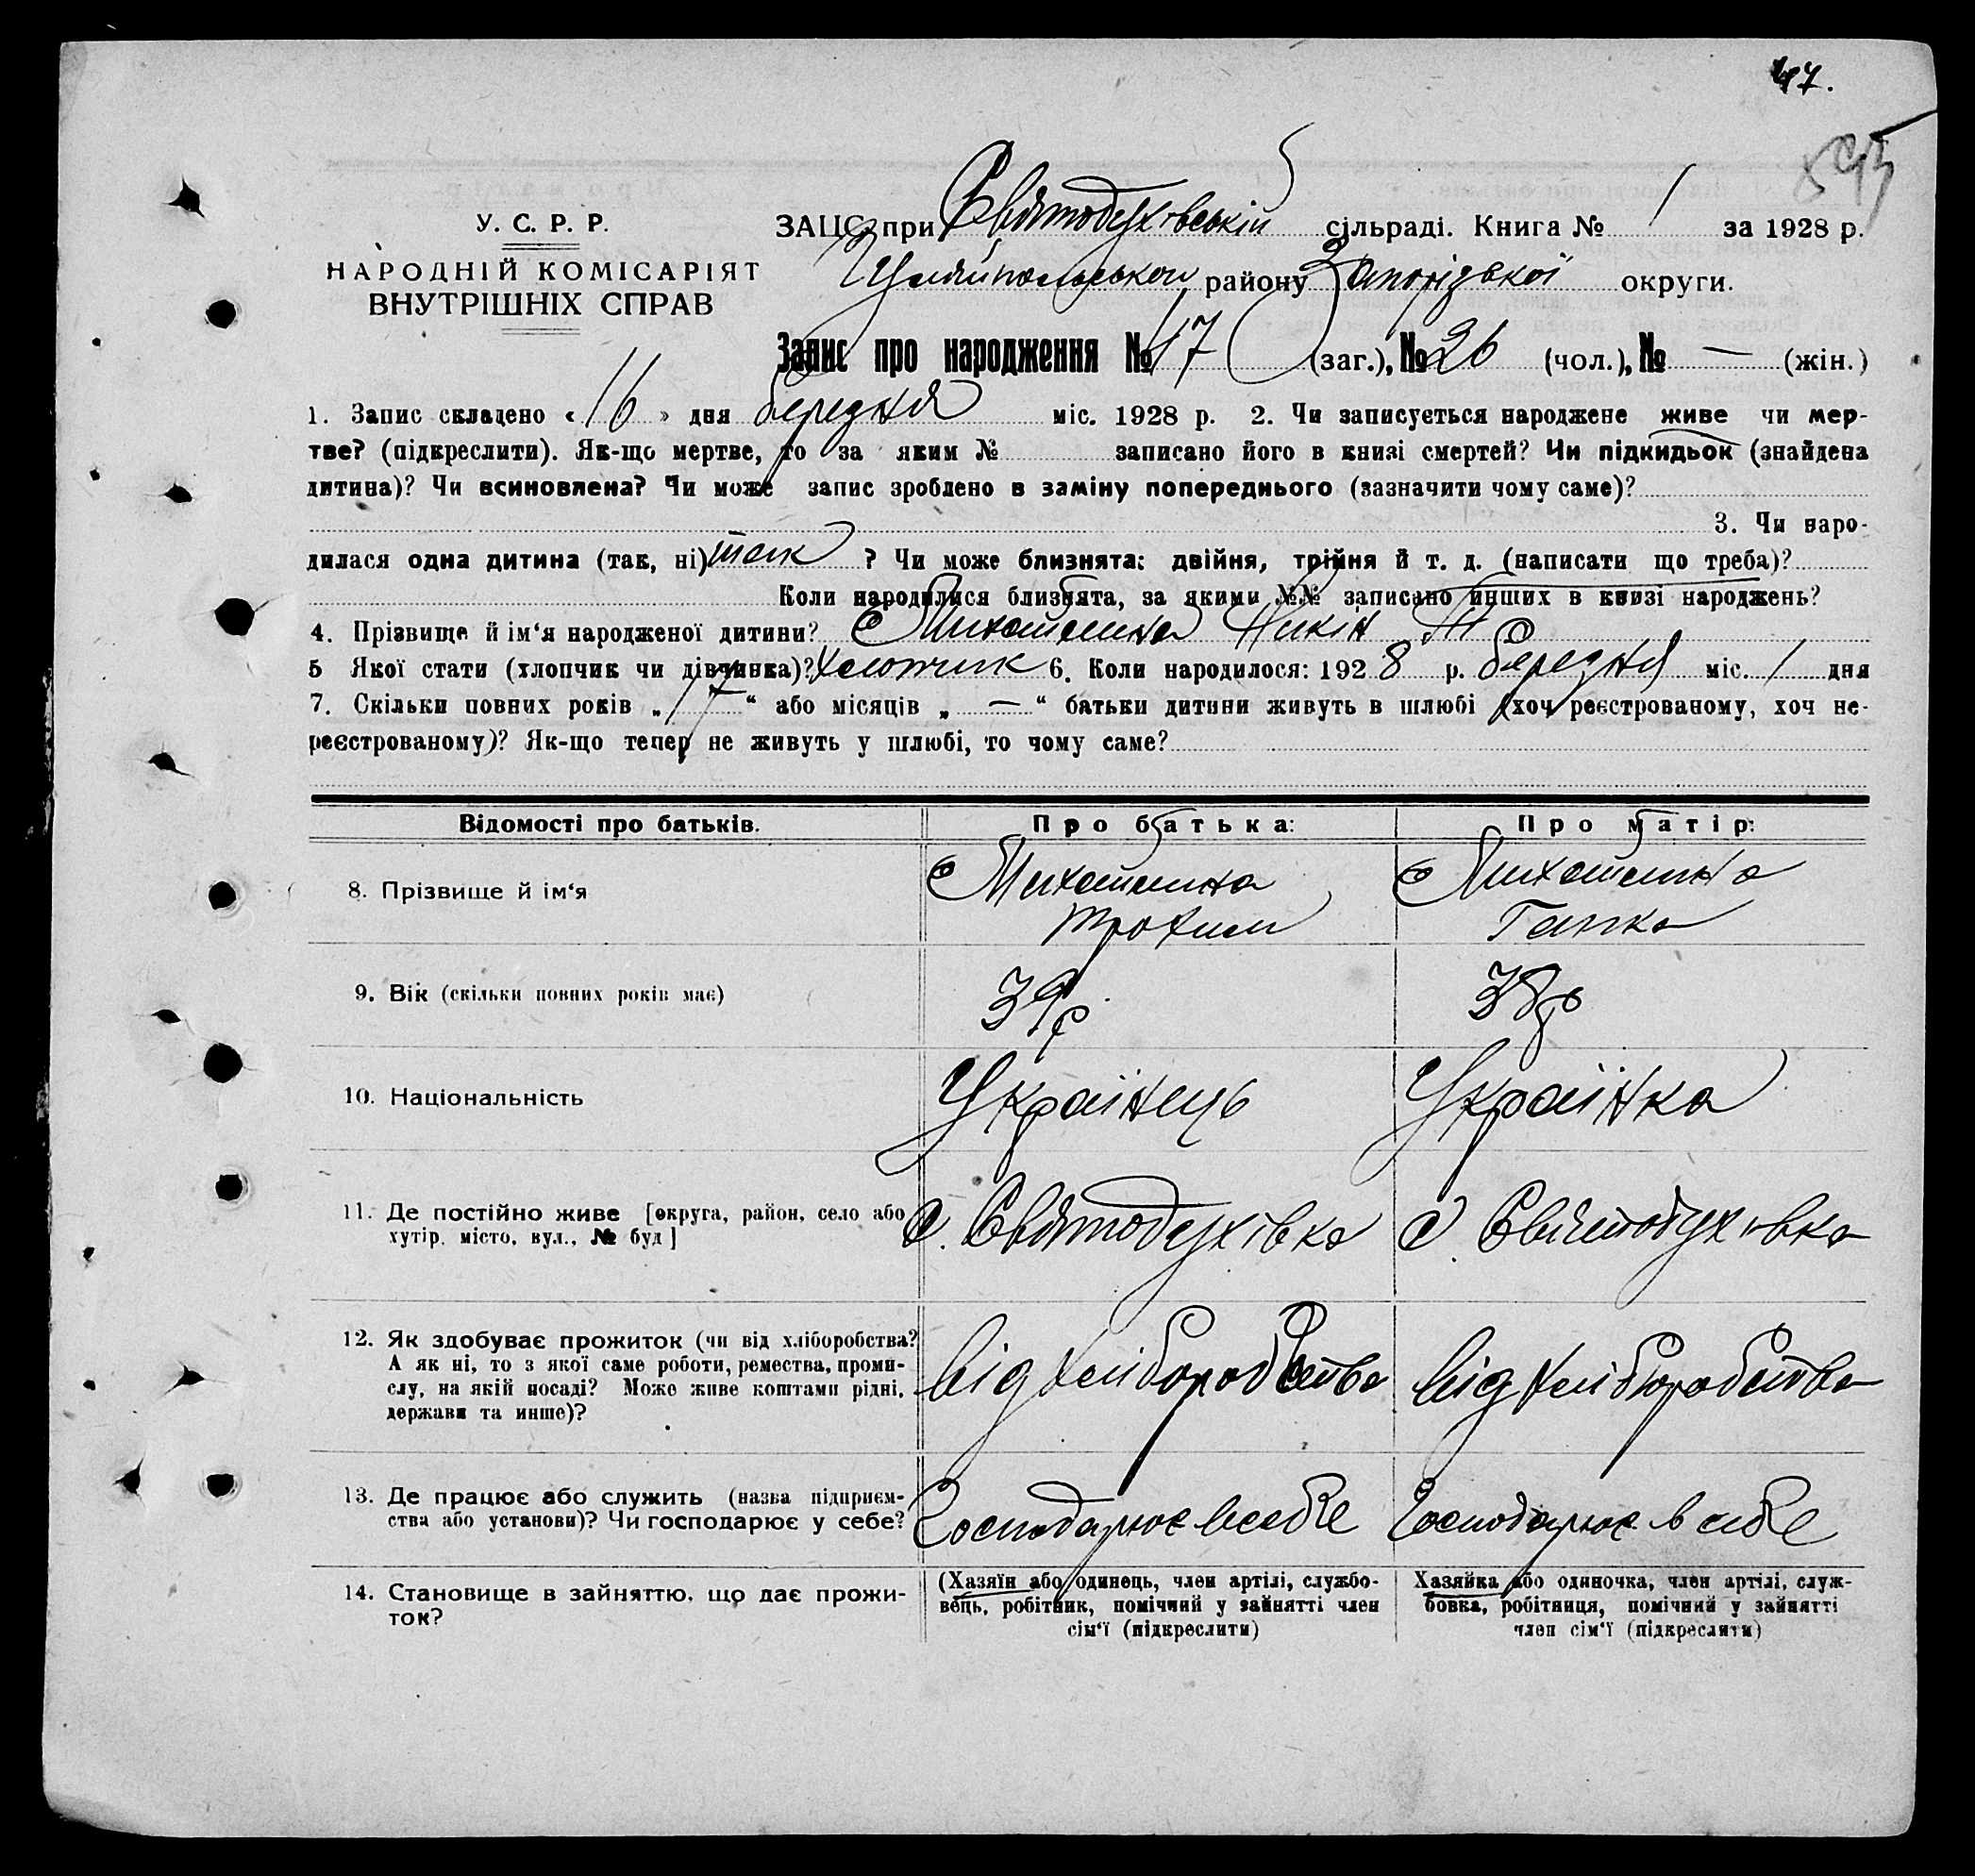 47.
595
У. С. Р. Р.
НАРОДНІЙ КОМІСАРІЯТ
ВНУТРІШНІХ СПРАВ
ЗАЦС при Святодухівській сільраді. Книга № 1 за 1928 р.
району Запорізької округи.
Запис про народження № 17 (заг.), № 26 (чол.), № — (жін.)
1. Запис складено «16» дня березня міс. 1928 р. 2. Чи записується народжене живе чи мер-
тве? (підкреслити). Як-що мертве, то за яким № записано його в книзі смертей? Чи підкидьок (знайдена
дитина)? Чи всиновлена? Чи може запис зроблено в заміну попереднього (зазначити чому саме)?
3. Чи наро-
дилася одна дитина (так, ні) так ? Чи може близнята: двійня, трійня й т. д. (написати що треба)?
Коли народилися близнята, за якими №№ записано инших в книзі народжень?
4. Прізвище й ім‘я народженої дитини? Михатилина Никін Т
5 Якої стати (хлопчик чи дівчинка)? хлопчик 6. Коли народилося: 1928 р. березня міс. 1 дня
7. Скільки повних років „17“ або місяців „—“ батьки дитини живуть в шлюбі (хоч реєстрованому, хоч не-
реєстрованому)? Як-що тепер не живуть у шлюбі, то чому саме?
Відомості про батьків. Про батька: Про матір:
8. Прізвище й ім‘я
Трохим Ганка
9. Вік (скільки повних років має) 39 р. 38 р
10. Національність Українець Українка
11. Де постійно живе [округа, район, село або
хутір, місто, вул., № буд] с. Святодухівка с. Святодухівка
12. Як здобуває прожиток (чи від хліборобства?
А як ні, то з якої саме роботи, ремества, проми-
слу, на якій посаді? Може живе коштами рідні,
держави та инше)? від хліборобства від хліборобства
13. Де працює або служить (назва підприєм-
ства або установи)? Чи господарює у себе? Господарює в себе Господарює в себе
14. Становище в зайняттю, що дає прожи-
ток?
(Хазяїн або одинець, член артілі, службо-
вець, робітник, помічний у зайнятті член
сім‘ї (підкреслити)
Хазяйка або одиночка, член артілі, служ-
бовка, робітниця, помічний у зайнятті
член сім‘ї (підкреслити)